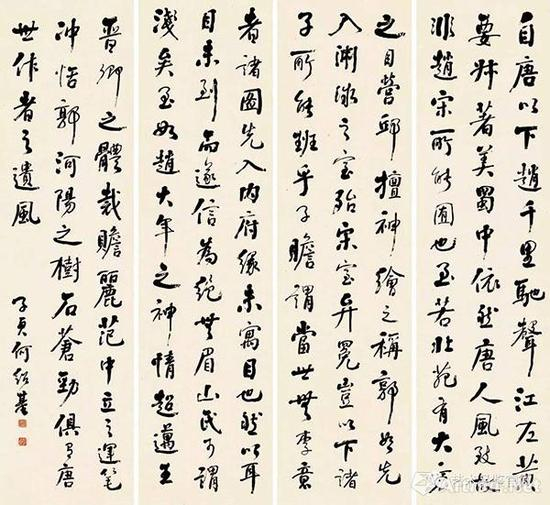 自唐以下趙千里馳聲江左黃
要叔著美蜀中依然唐人風致故
非趙宋所能囿也至若北苑有大家
之目營邱擅神繪之稱郭恕先
入淵微之室殆宋室弁冕豈以下諸
子所能班乎子瞻謂當世無李
者諸圖先入內府緣未寓目也然以耳
目未到而遂信為絕無眉山氏可謂
淺矣至如趙大年之神情超邁王
晉卿之體裁贍麗范中立之運筆
沖恬郭河陽之樹石蒼勁俱有唐
世作者之遺風
子貞何紹基